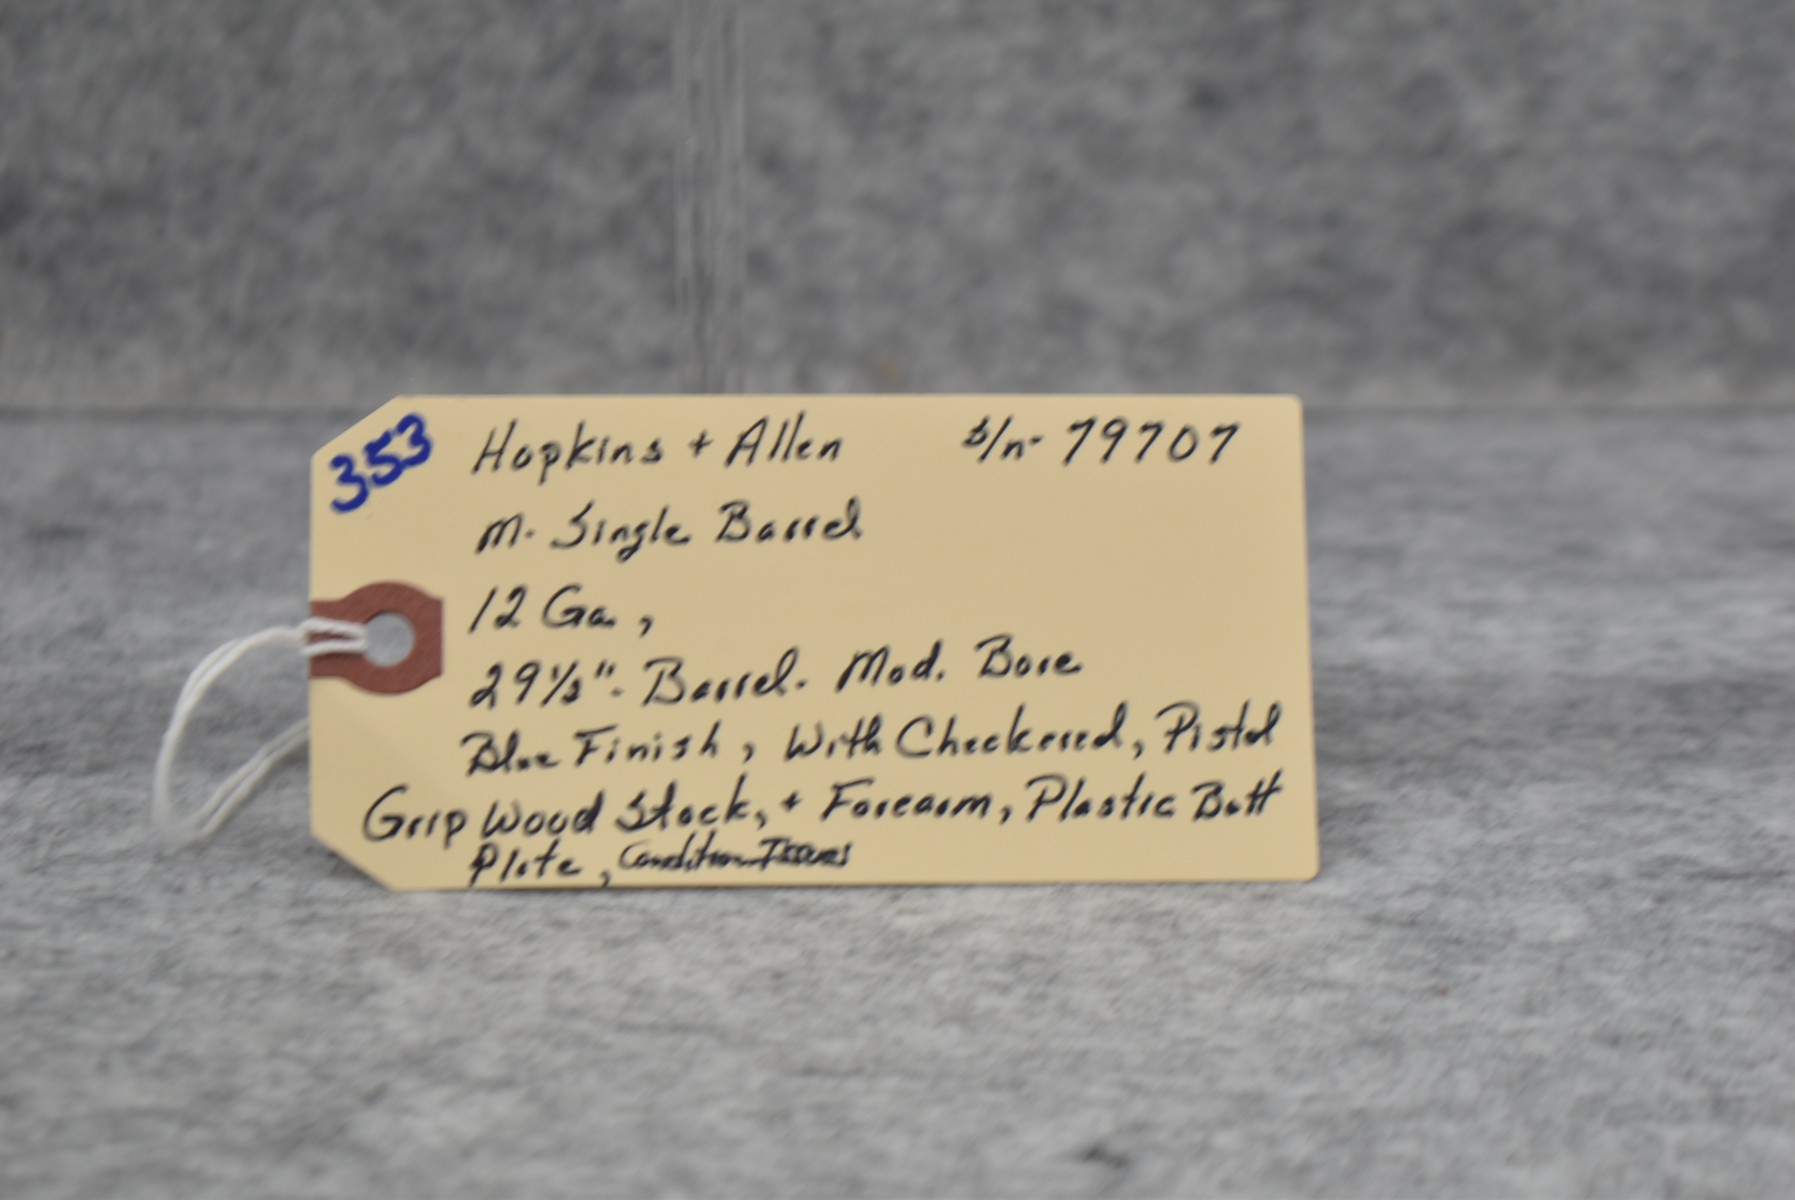 353
Hopkins + Allen s/n- 79707
M- Single Barrel
12 Ga,
29½"- Barrel- Mod. Bore
Blue Finish, With Checkered, Pistol
Grip Wood Stock, + Forearm, Plastic Butt
Plate, Condition Issues